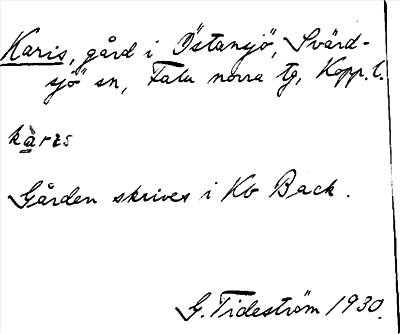 Karis, gård i Östansjö, Svärd-
sjö sn, Falu norra tg, Kopp. l.
kàrɪs
Gården skrives i Kb Back.
G. Tideström 1930.